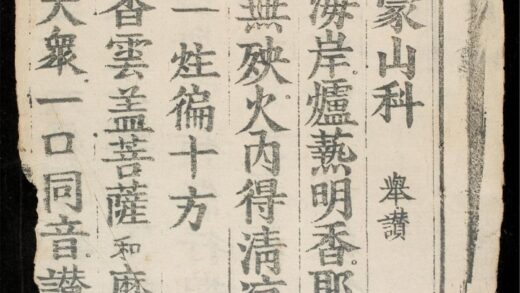 蒙山科 舉讃
海岸爐爇明香耶
無殃火内得清凉
一炷徧十方
香雲盖菩薩和麻
大衆一口同音讃